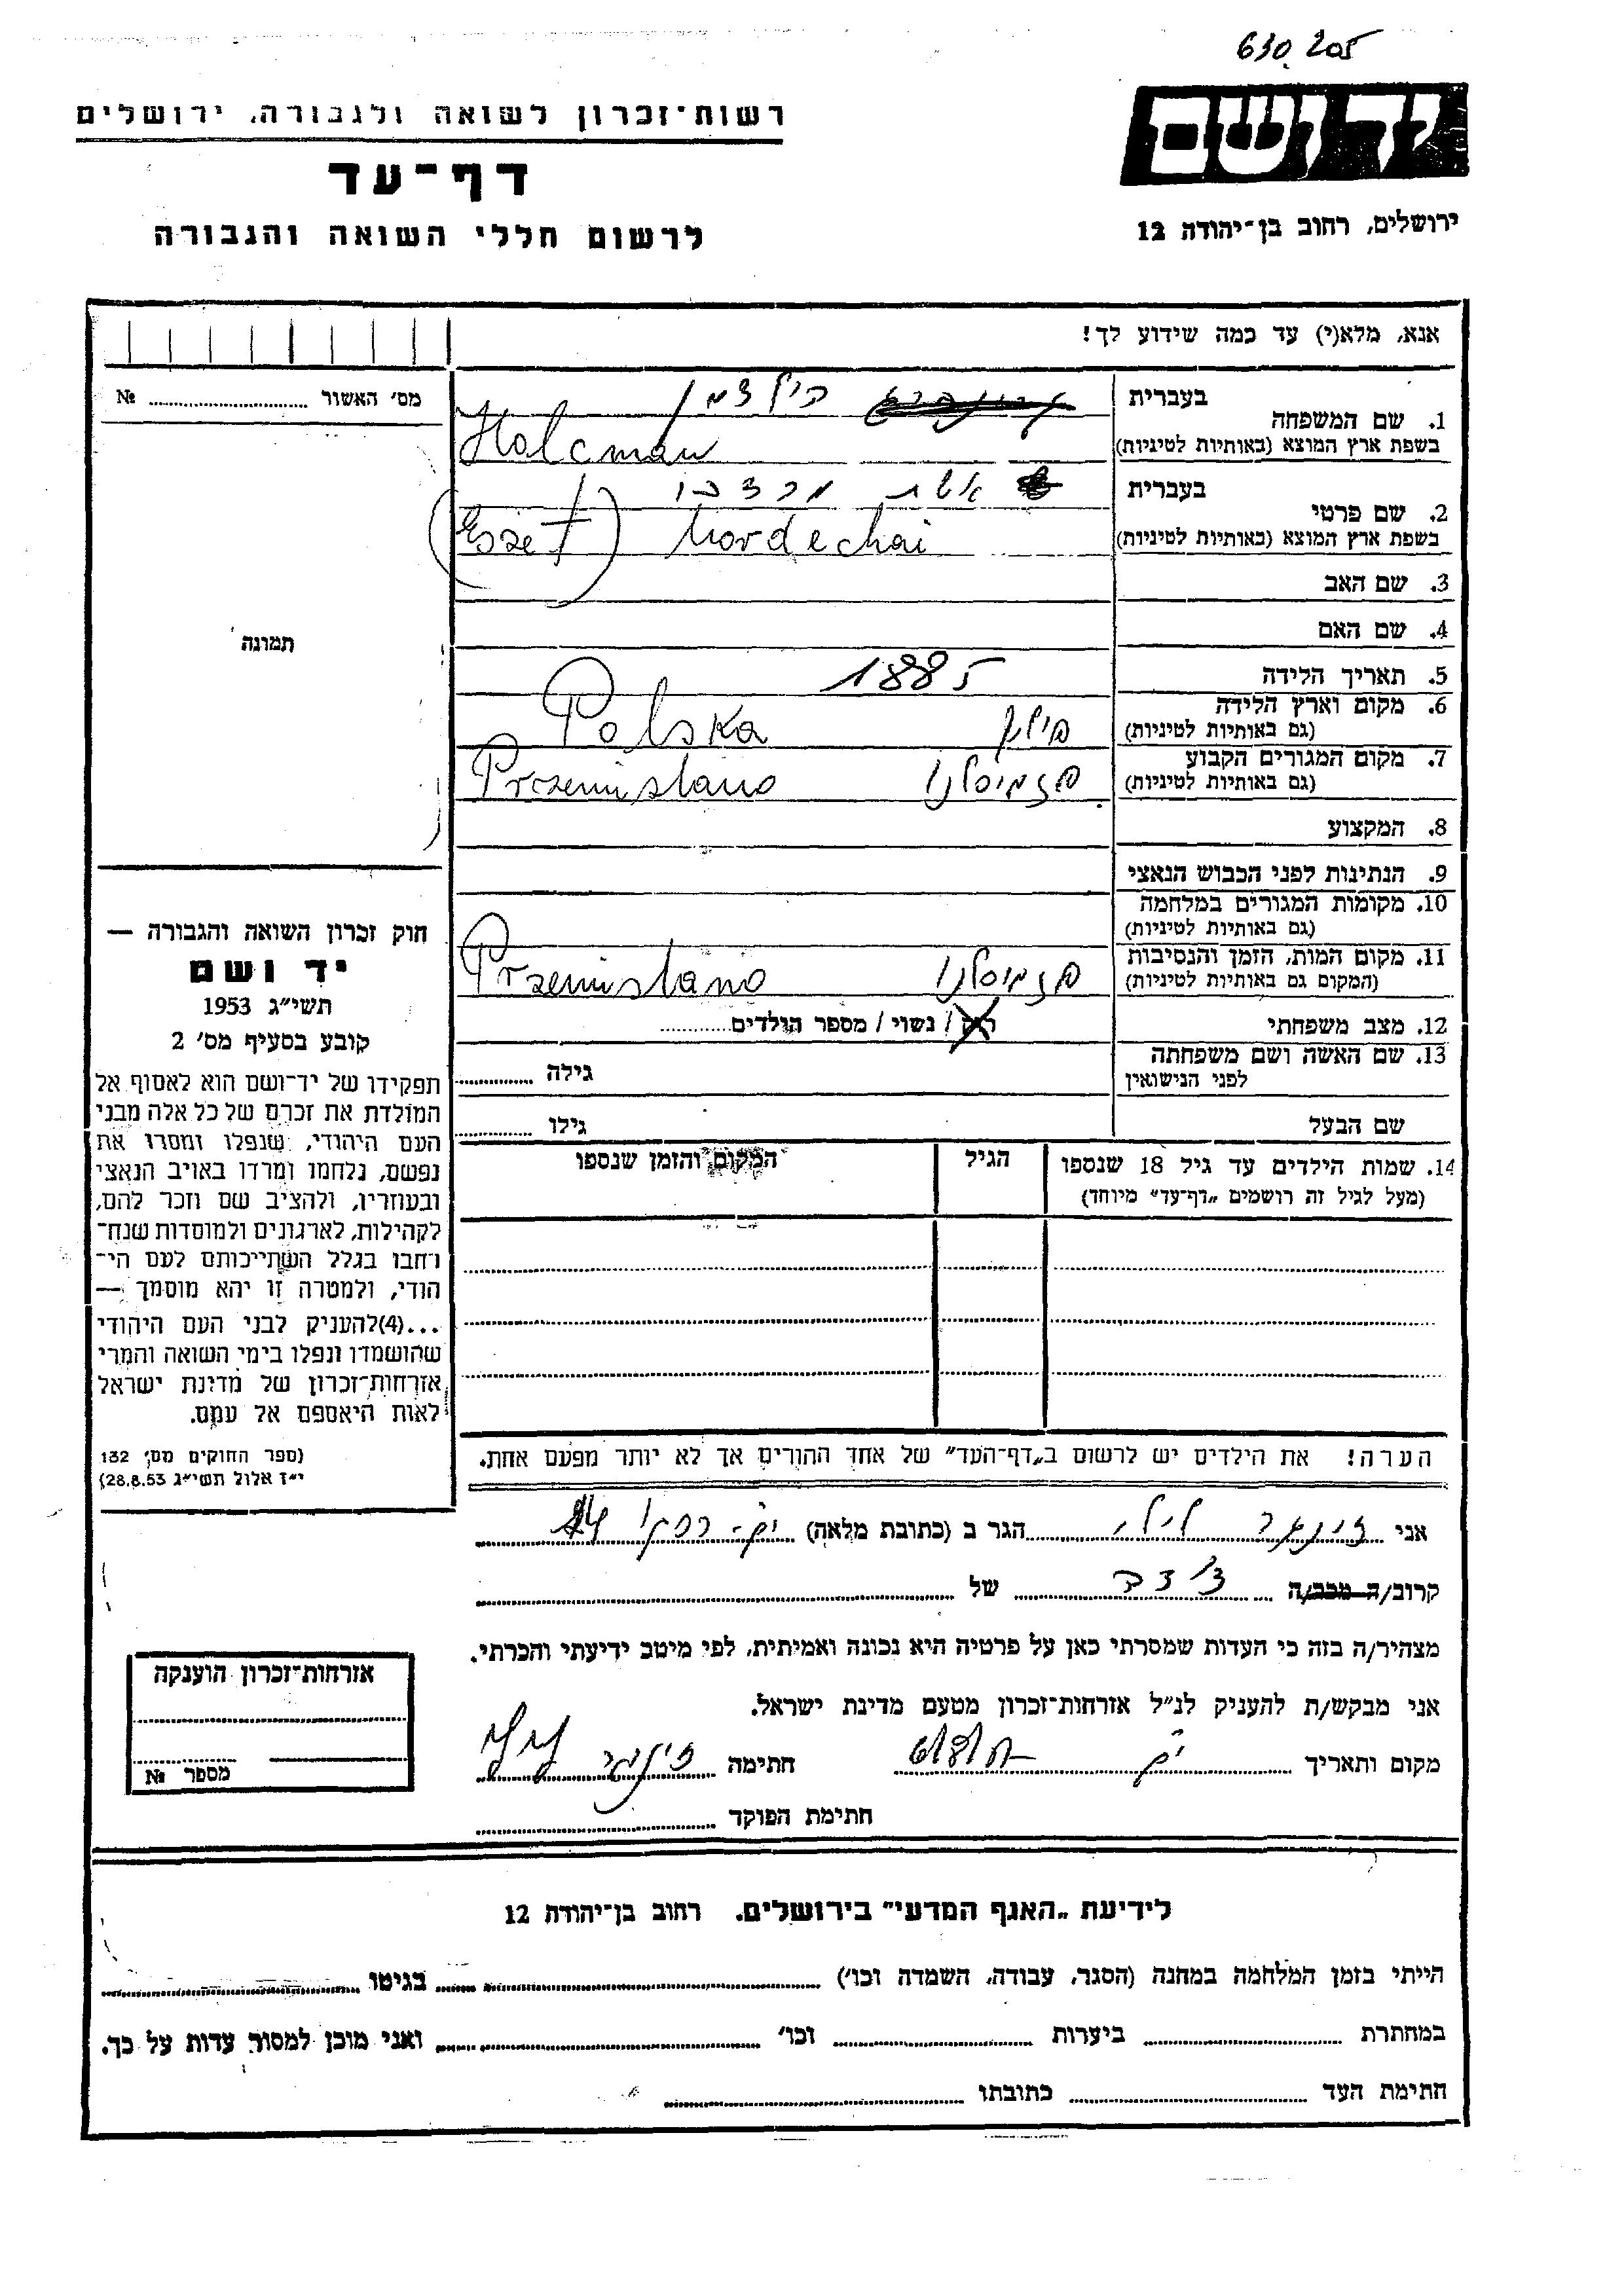 630.205
רשות־זכרון לשואה ולגבורה, ירושלים
דף־עד
לרשום חללי השואה והגבורה
יד ושם
ירושלים, רחוב בן־יהודה 12
אנא, מלא(י) עד כמה שידוע לך!
מס׳ האשור № ............
1. שם המשפחה
בעברית הולצמן
בשפת ארץ המוצא (באותיות לטיניות) Holcman
2. שם פרטי
בעברית אשת מרדכי
בשפת ארץ המוצא (באותיות לטיניות) (Eszet) Mordechai
3. שם האב
4. שם האם
5. תאריך הלידה 1885
6. מקום וארץ הלידה
(גם באותיות לטיניות) פולין Polska
7. מקום המגורים הקבוע
(גם באותיות לטיניות) פזמיסלנו Przemislano
8. המקצוע
9. הנתינות לפני הכבוש הנאצי
10. מקומות המגורים במלחמה
(גם באותיות לטיניות)
11. מקום המות, הזמן והנסיבות
(המקום גם באותיות לטיניות) פזמיסלנו Przemislano
12. מצב משפחתי רוק / נשוי / מספר הילדים............
13. שם האשה ושם משפחתה
לפני הנישואין גילה ............
שם הבעל גילו ............
14. שמות הילדים עד גיל 18 שנספו הגיל המקום והזמן שנספו
(מעל לגיל זה רושמים „דף־עד״ מיוחד)
הערה! את הילדים יש לרשום ב„דף־העד״ של אחד ההורים אך לא יותר מפעם אחת.
תמונה
חוק זכרון השואה והגבורה —
יד ושם
תשי״ג 1953
קובע בסעיף מס׳ 2
תפקידו של יד־ושם הוא לאסוף אל
המולדת את זכרם של כל אלה מבני
העם היהודי, שנפלו ומסרו את
נפשם, נלחמו ומרדו באויב הנאצי
ובעוזריו, ולהציב שם וזכר להם,
לקהילות, לארגונים ולמוסדות שנח־
רבו בגלל השתייכותם לעם הי־
הודי, ולמטרה זו יהא מוסמך —
...(4)להעניק לבני העם היהודי
שהושמדו ונפלו בימי השואה והמרי
אזרחות־זכרון של מדינת ישראל
לאות היאספם אל עמם.
(ספר החוקים מס׳ 132
י״ז אלול תשי״ג 28.8.53)
אני הגר ב (כתובת מלאה)
קרוב/ה מכר/ה של ............
מצהיר/ה בזה כי העדות שמסרתי כאן על פרטיה היא נכונה ואמיתית, לפי מיטב ידיעתי והכרתי.
אני מבקש/ת להעניק לנ״ל אזרחות־זכרון מטעם מדינת ישראל.
מקום ותאריך חתימה
חתימת הפוקד ............
אזרחות־זכרון הוענקה
מספר №
לידיעת „האגף המדעי״ בירושלים, רחוב בן־יהודה 12
הייתי בזמן המלחמה במחנה (הסגר, עבודה, השמדה וכו׳) ............ בגיטו ............
במחתרת ............ ביערות ............ וכו׳ ............ ואני מוכן למסור עדות על כך.
חתימת העד ............ כתובתו ............